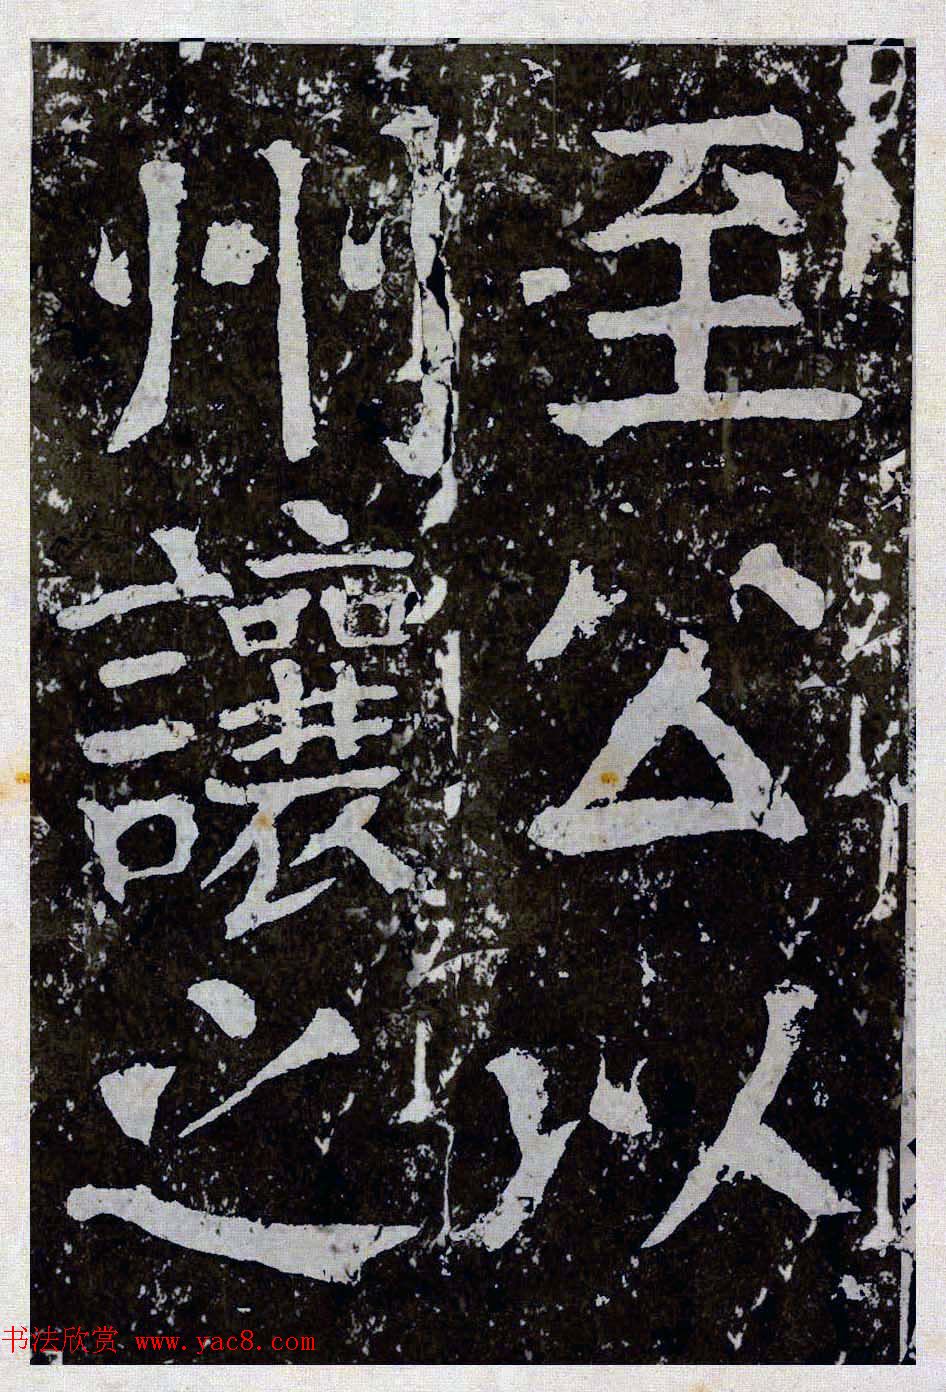 至公以
州讓之
书法欣赏 www.yac8.com